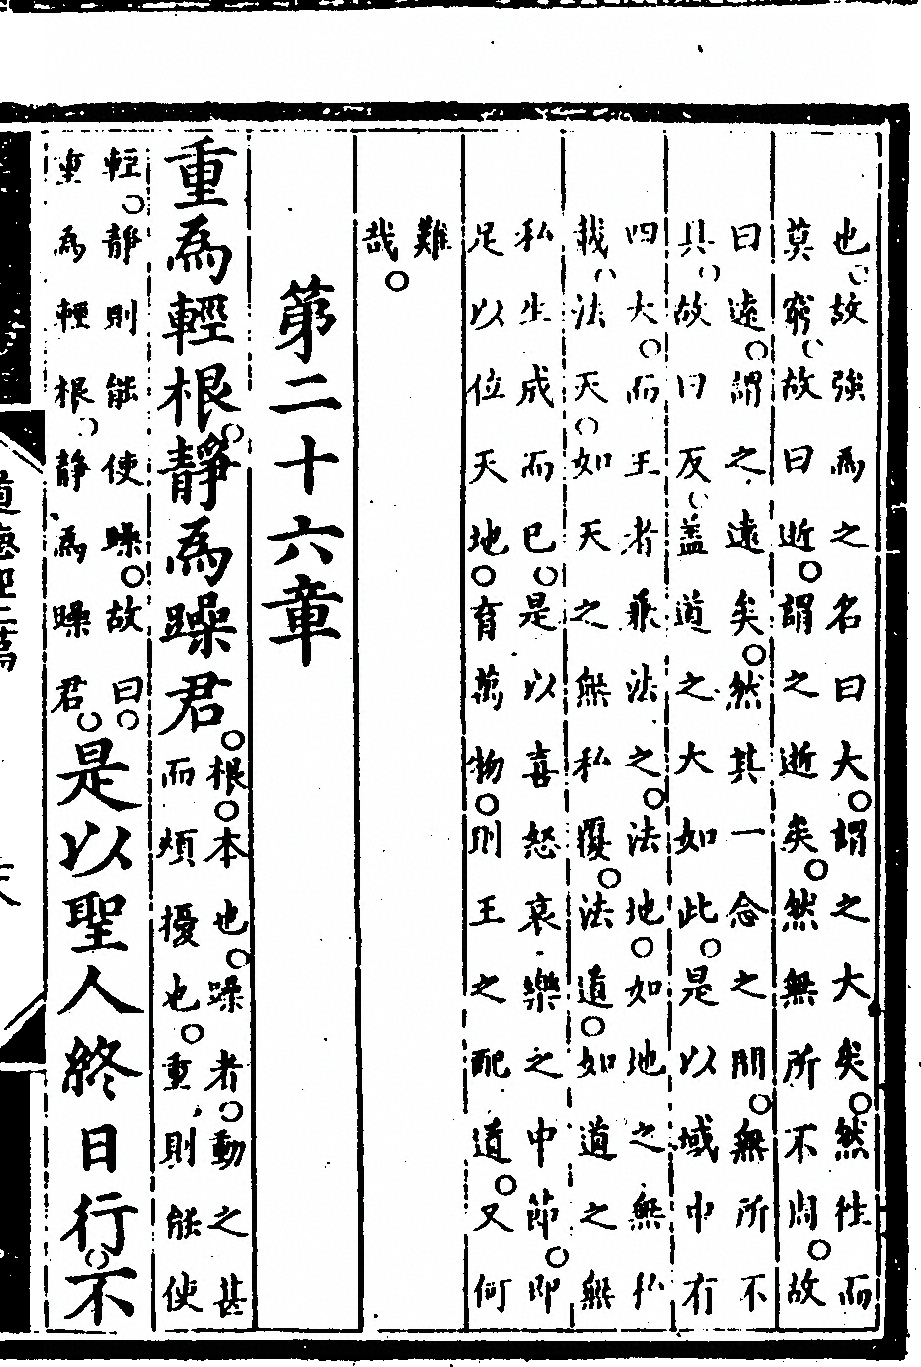 也故強為之名曰大。謂之大矣。然往而
莫窮。故曰逝。謂之逝矣。然無所不周。故
曰遠。謂之遠矣。然其一念之間。無所不
具。故曰反。蓋道之大如此。是以域中有
四大。而王者兼法之。法地。如地之無私
載。法天。如天之無私覆。法道。如道之無
私生成而已。是以喜怒哀樂之中節。即
足以位天地。育萬物。則王之配道。又何
難
哉。
第二十六章
重為輕根。靜為躁君。
根。本也。躁者。動之甚
而煩擾也。重則能使
輕。靜則能使躁。故曰。
重為輕根。靜為躁君。
是以聖人終日行。不